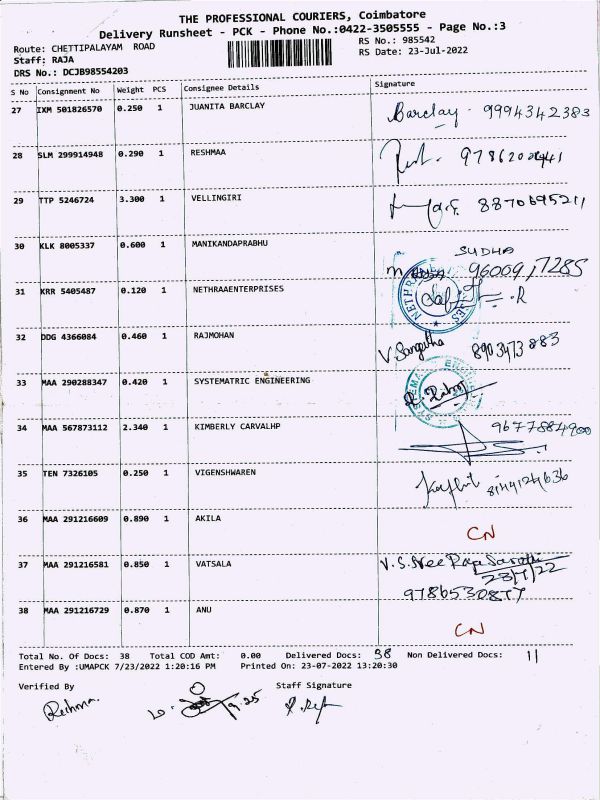 THE PROFESSIONAL COURIERS, Coimbatore
Delivery Runsheet - PCK - Phone No.:0422-3505555 - Page No.:3
Route: CHETTIPALAYAM ROAD
RS No.: 985542
Staff: RAJA
RS Date: 23-Jul-2022
DRS No.: DCJB98554203
S No Consignment No Weight PCS Consignee Details Signature
27 IXM 501826570 0.250 1 JUANITA BARCLAY Barclay - 9994342383
28 SLM 299914948 0.290 1 RESHMAA
29 TTP 5246724 3.300 1 VELLINGIRI 8870695211
30 KLK 8005337 0.600 1 MANIKANDAPRABHU SUDHA
9600917285
31 KRR 5405487 0.120 1 NETHRAAENTERPRISES
32 DDG 4366084 0.460 1 RAJMOHAN V. Sangetha 8903473883
33 MAA 290288347 0.420 1 SYSTEMATRIC ENGINEERING
34 MAA 567873112 2.340 1 KIMBERLY CARVALHP 9677884900
35 TEN 7326105 0.250 1 VIGENSHWAREN 8144124636
36 MAA 291216609 0.890 1 AKILA CN
37 MAA 291216581 0.850 1 VATSALA V.S.Sree Raja Sarathi
23/7/22
9786530877
38 MAA 291216729 0.870 1 ANU CN
Total No. Of Docs: 38 Total COD Amt: 0.00 Delivered Docs: 38 Non Delivered Docs: 11
Entered By :UMAPCK 7/23/2022 1:20:16 PM Printed On: 23-07-2022 13:20:30
Verified By Staff Signature
Reshma